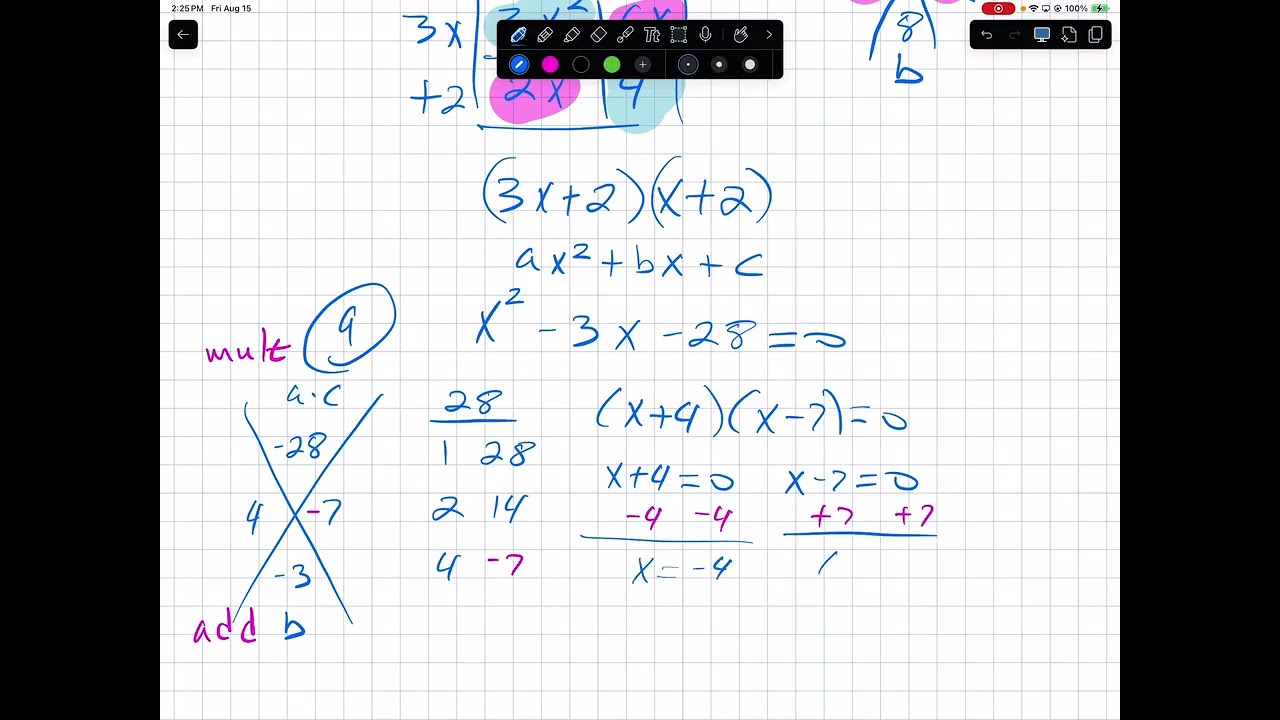 2:25 PM Fri Aug 15
100%
3x
+2 2x 4
8
b
(3x+2)(x+2)
ax² + bx + c
9
x² - 3x - 28 = 0
mult
a·c
-28
4 -7
-3
add b
28
1 28
2 14
4 -7
(x+4)(x-7) = 0
x+4 = 0 x-7 = 0
-4 -4 +7 +7
x = -4